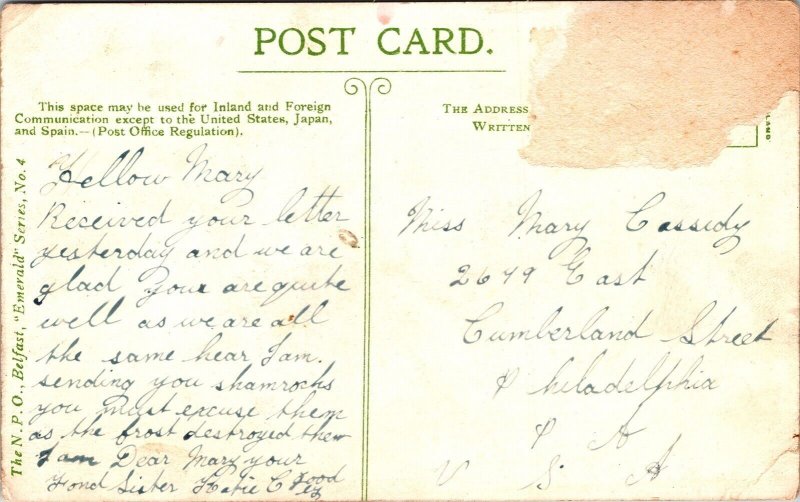 POST CARD.
This space may be used for Inland and Foreign
Communication except to the United States, Japan,
and Spain.—(Post Office Regulation).
THE ADDRESS
WRITTEN
LAND
The N.P.O., Belfast, "Emerald" Series, No. 4
Hellow Mary
Received your letter
yesterday and we are
glad you are quite
well as we are all
the same hear I am
sending you shamrocks
you must excuse them
as the frost destroyed them
I am Dear Mary your
Fond Sister Katie C Good
by
Miss Mary Cassidy
2679 East
Cumberland Street
Philadelphia
P A
U S A